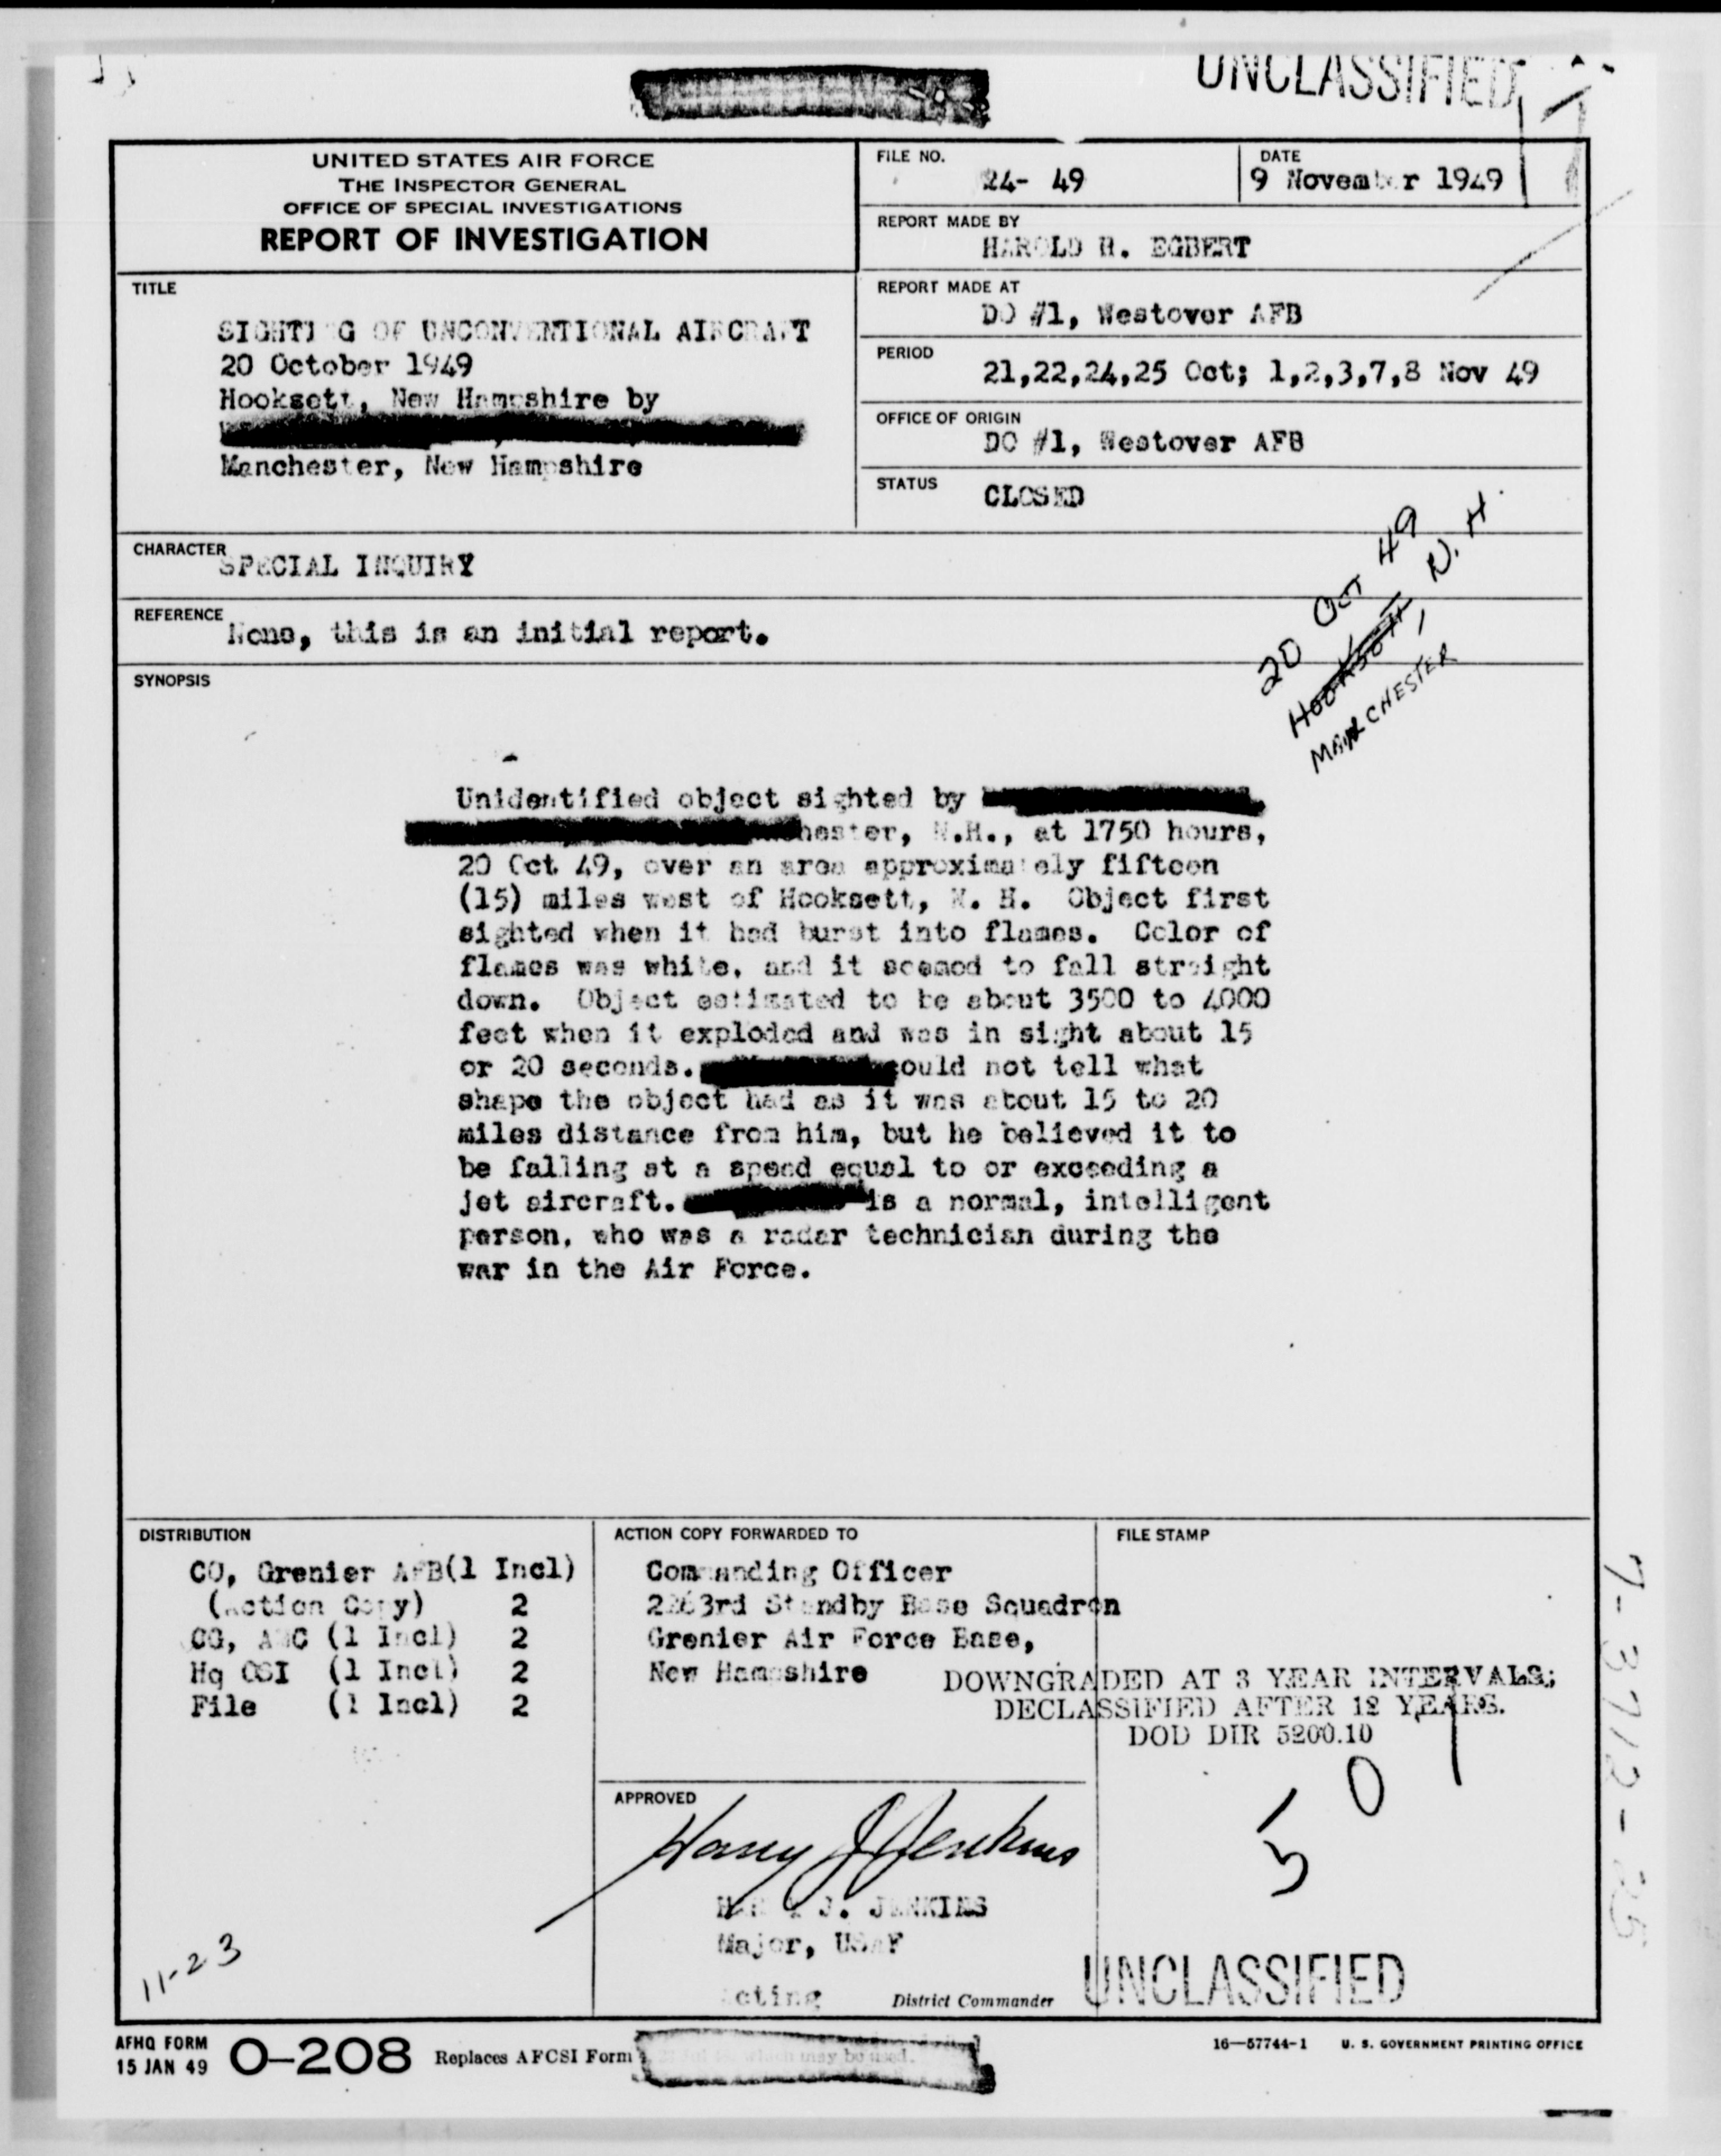 UNCLASSIFIED
UNITED STATES AIR FORCE
THE INSPECTOR GENERAL
OFFICE OF SPECIAL INVESTIGATIONS
REPORT OF INVESTIGATION
FILE NO.
24- 49
DATE
9 November 1949
REPORT MADE BY
HAROLD H. EGBERT
REPORT MADE AT
DO #1, Westover AFB
PERIOD
21,22,24,25 Oct; 1,2,3,7,8 Nov 49
OFFICE OF ORIGIN
DO #1, Westover AFB
STATUS
CLOSED
TITLE
SIGHTING OF UNCONVENTIONAL AIRCRAFT
20 October 1949
Hooksett, New Hampshire by
Manchester, New Hampshire
CHARACTER
SPECIAL INQUIRY
REFERENCE
None, this is an initial report.
20 Oct 49
Hooksett, N.H.
MANCHESTER
SYNOPSIS
Unidentified object sighted by
hester, N.H., at 1750 hours,
20 Oct 49, over an area approximately fifteen
(15) miles west of Hooksett, N. H. Object first
sighted when it had burst into flames. Color of
flames was white, and it seemed to fall straight
down. Object estimated to be about 3500 to 4000
feet when it exploded and was in sight about 15
or 20 seconds. could not tell what
shape the object had as it was about 15 to 20
miles distance from him, but he believed it to
be falling at a speed equal to or exceeding a
jet aircraft. is a normal, intelligent
person, who was a radar technician during the
war in the Air Force.
DISTRIBUTION
CO, Grenier AFB(1 Incl)
(Action Copy) 2
CG, AMC (1 Incl) 2
Hq OSI (1 Incl) 2
File (1 Incl) 2
11-23
ACTION COPY FORWARDED TO
Commanding Officer
2263rd Standby Base Squadron
Grenier Air Force Base,
New Hampshire
FILE STAMP
DOWNGRADED AT 3 YEAR INTERVALS;
DECLASSIFIED AFTER 12 YEARS.
DOD DIR 5200.10
APPROVED
Harry J Jenkins
HARRY J. JENKINS
Major, USAF
Acting District Commander
UNCLASSIFIED
7-3712-25
AFHQ FORM
15 JAN 49
O-208
Replaces AFCSI Form which may be used.
16—57744-1 U. S. GOVERNMENT PRINTING OFFICE